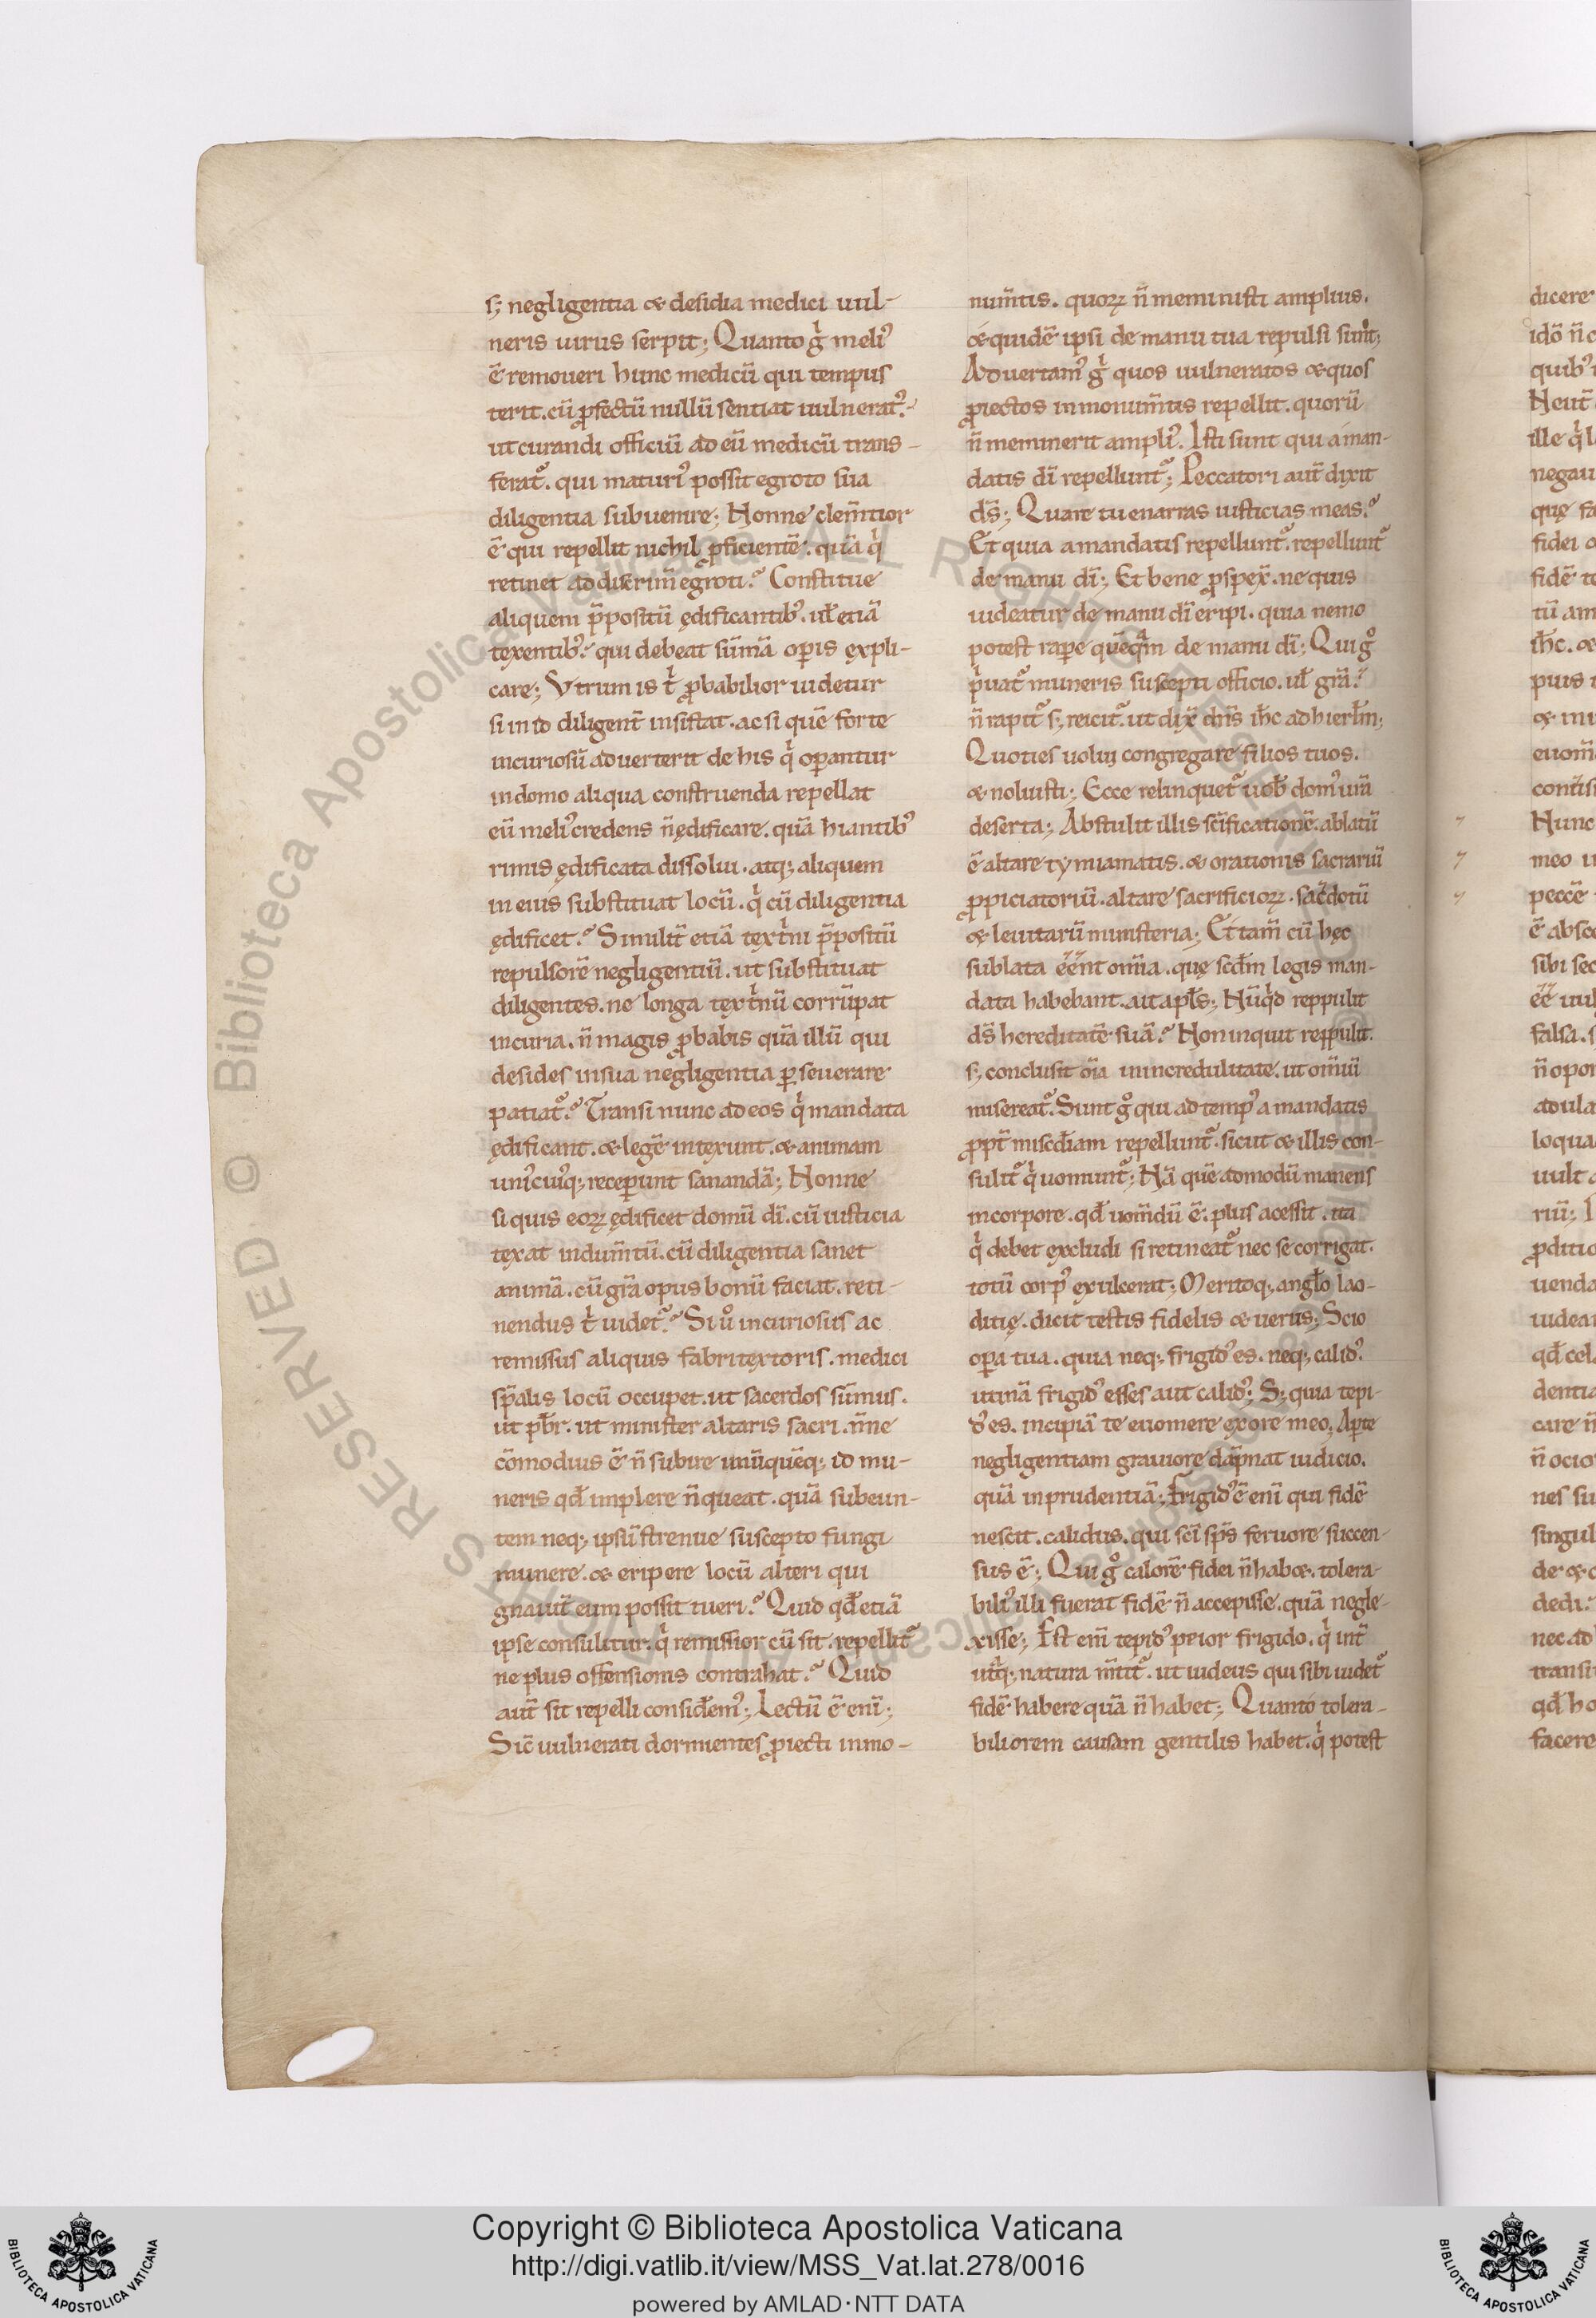 s; negligentia & desidia medici uul-
neris uirus serpit; Quanto gͥ meliꝰ
ē remoueri hunc medicū qui tempus
terit. cū ꝓfectū nullū sentiat uulneratꝰ.
ut curandi officiū ad eū medicū trans-
feratᷣ. qui maturiꝰ possit egroto sua
diligentia subuenire; Nonne clem̄tior
ē qui repellit nichil ꝓficientē. quā qͥ
retinet ad discrim̄ egroti? Constitue
aliquem p̄positū ędificantibꝰ. uł etiā
texentibꝰ. qui debeat sūmā oꝑis expli-
care; Vtrum is tͥ ꝓbabilior uidetur
si in id diligent̄ insistat. ac si quē forte
incuriosū aduerterit de his qͥ oꝑantur
in domo aliqua construenda repellat
eū meliꝰ credens n̄ ędificare. quā hiantibꝰ
rimis ędificata dissolui. atq; aliquem
in eius substituat locū. qͥ cū diligentia
ędificet? Similit̄ etiā textͥni p̄positū
repulsorē negligentiū. ut substituat
diligentes. ne longa textͥnū corrūpat
incuria. n̄ magis ꝓbabis quā illū qui
desides in sua negligentia ꝑseuerare
patiatᷣ? Transi nunc ad eos qͥ mandata
ędificant. & legē intexunt. & animam
uniꝰcuiꝰq; receꝑunt sanandā; Nonne
si quis eoꝝ ędificet domū dī. cū iusticia
texat indum̄tū. cū diligentia sanet
animā. cū gr̄a opus bonū faciat. reti-
nendus tͥ uidetᷣ? Si uͦ incuriosus ac
remissus aliquis fabri textoris. medici
sp̄alis locū occupet. ut sacerdos sūmus.
ut pb̄r. ut minister altaris sacri. n̄ne
cōmodius ē n̄ subire unūquēq; id mu-
neris qd̄ implere n̄ queat. quā subeun-
tem neq; ipsū strenue suscepto fungi
munere. & eripere locū alteri qui
gnauit̄ eum possit tueri? Quid qd̄ etiā
ipse consulitur. qͥ remissior cū sit. repellitᷣ
ne plus offensionis contrahat? Quid
aut̄ sit repelli consid̄emꝰ; Lectū ē enī;
Sic̄ uulnerati dormientes ꝓiecti in mo-
num̄tis. quoꝝ n̄ meministi amplius.
& quidē ipsi de manu tua repulsi sunt;
Aduertamꝰ gͥ quos uulneratos & quos
ꝓiectos in monum̄tis repellit. quorū
n̄ meminerit ampliꝰ. Isti sunt qui a man-
datis dī repelluntᷣ; Peccatori aut̄ dixit
ds̄; Quare tu enarras iusticias meas?
Et quia a mandatis repelluntᷣ. repelluntᷣ
de manu dī; Et bene ꝓspex̄. ne quis
uideatur de manu dī eripi. quia nemo
potest raꝑe quēqͣm de manu dī; Qui gͦ
pͥuatᷣ muneris suscepti officio. uł gr̄a.
n̄ rapitᷣ s; reicitᷣ. ut dix̄ dn̄s ih̄c ad hierłm;
Quoties uolui congregare filios tuos.
& noluisti; Ecce relinquetᷣ uob̄ domꝰ ur̄a
deserta; Abstulit illis sc̄ificationē. ablatū
ē altare tymiamatis. & orationis sacrariū
ꝓpiciatoriū. altare sacrificioꝝ. sac̄dotū
& leuitarū ministeria; Et tam̄ cū hęc
sublata ēēnt om̄ia. quę scd̄m legis man-
data habebant. ait apłs; Nūqͥd reppulit
ds̄ hereditatē suā? Non inquit reppulit.
s; conclusit oīa in incredulitate. ut om̄iū
misereatᷣ. Sunt gͦ qui ad tempꝰ a mandatis
ꝓpt̄ miscd̄iam repelluntᷣ. sicut & illis con-
sulitᷣ qͥ uomuntᷣ; Nā quē admodū manens
in corpore. qd̄ uom̄dū ē. plus acessit. ita
qͥ debet excludi si retineatᷣ nec se corrigat.
totū corpꝰ exulcerat; Meritoq; angło lao-
ditię. dicit testis fidelis & uerus; Scio
oꝑa tua. quia neq; frigidꝰ es. neq; calidꝰ.
utinā frigidꝰ esses aut calidꝰ; S; quia tepi-
dꝰ es. incipiā te euomere ex ore meo; Aꝑte
negligentiam grauiore dāpnat iudicio.
quā inprudentiā; Frigidꝰ ē enī qui fidē
nescit. calidus. qui sc̄i sp̄s feruore succen-
sus ē; Qui gͦ calorē fidei n̄ hab&. tolera-
biliꝰ illi fuerat fidē n̄ accepisse. quā negle-
xisse; Est enī tepidꝰ peior frigido. qͥ int̄
utͣq; natura m̄titᷣ. ut iudeus qui sibi uidetᷣ
fidē habere quā n̄ habet; Quanto tolera-
biliorem causam gentilis habet. qͥ potest
Copyright © Biblioteca Apostolica Vaticana
http://digi.vatlib.it/view/MSS_Vat.lat.278/0016
powered by AMLAD·NTT DATA